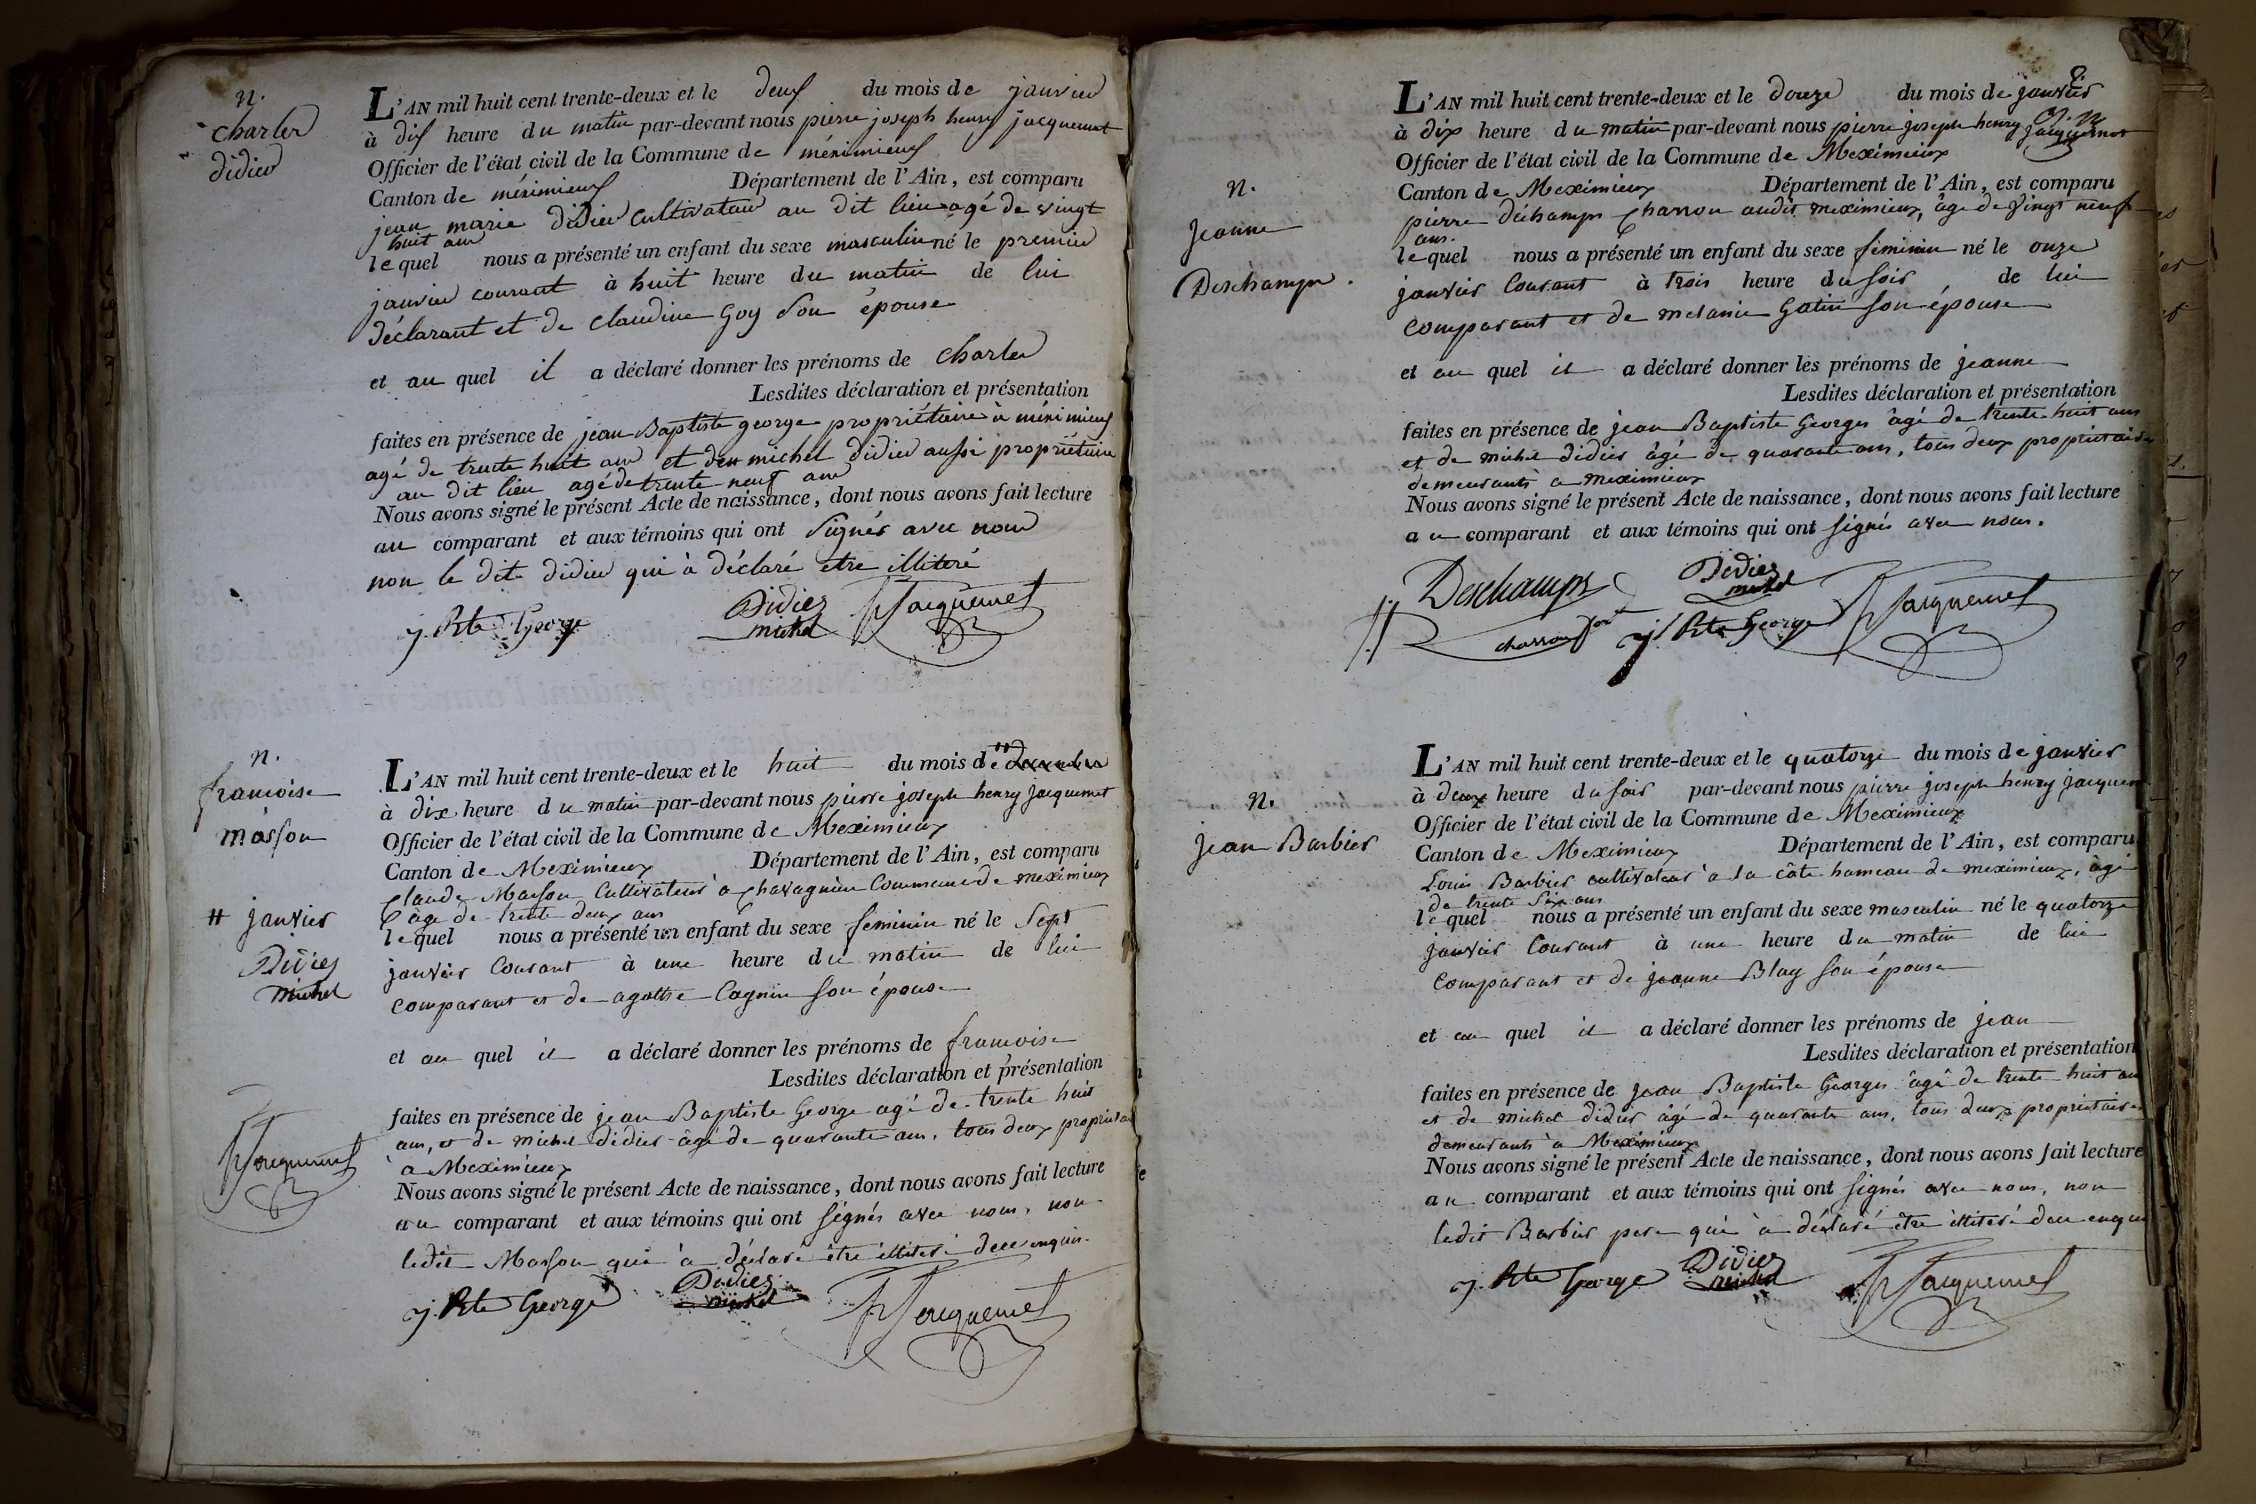 n.
charles
didier
L'AN mil huit cent trente-deux et le deux du mois de janvier
à dix heure du matin par-devant nous pierre joseph henry jacquemet
Officier de l'état civil de la Commune de méximieux
Canton de méximieux Département de l'Ain, est comparu
jean marie didier cultivateur au dit lieu agé de vingt
huit ans
lequel nous a présenté un enfant du sexe masculin né le premier
janvier courant à huit heure du matin de lui
déclarant et de claudine Goy son épouse
et au quel il a déclaré donner les prénoms de charles
Lesdites déclaration et présentation
faites en présence de jean Baptiste george propriétaire à méximieux
agé de trente huit ans et de michel didier aussi propriétaire
au dit lieu agé de trente neuf ans
Nous avons signé le présent Acte de naissance, dont nous avons fait lecture
au comparant et aux témoins qui ont signés avec nous
non le dit didier qui à déclaré etre illiteré
j. Bte George Didier michel Jacquemet
n.
francoise
masson
# janvier
Didier
michel
Jacquemet
L'AN mil huit cent trente-deux et le huit du mois de # decembre
à dix heure du matin par-devant nous pierre joseph henry Jacquemet
Officier de l'état civil de la Commune de Meximieux
Canton de Meximieux Département de l'Ain, est comparu
Claude Masson Cultivateur à Chavagnieu Commune de meximieux
âgé de trente deux ans
lequel nous a présenté un enfant du sexe feminin né le Sept
janvier Courant à une heure du matin de lui
comparant et de agathe Cagnin son épouse
et au quel il a déclaré donner les prénoms de francoise
Lesdites déclaration et présentation
faites en présence de jean Baptiste George agé de trente huit
ans, et de michel didier âgé de quarante ans, tous deux
à Meximieux
Nous avons signé le présent Acte de naissance, dont nous avons fait lecture
au comparant et aux témoins qui ont signés avec nous, non
ledit Masson qui à déclaré être illiteré de ce enquis.
j. Bte George Didier michel Jacquemet
2.
n.
Jeanne
Deschamps.
L'AN mil huit cent trente-deux et le douze du mois de janvier
à dix heure du matin par-devant nous pierre joseph henry jacquemet
Officier de l'état civil de la Commune de Meximieux
Canton de Meximieux Département de l'Ain, est comparu
pierre déchamps Charron audit meximieux, âgé de vingt neuf
ans.
lequel nous a présenté un enfant du sexe féminin né le onze
janvier Courant à trois heure du soir de lui
comparant et de melanie Gatin son épouse
et au quel il a déclaré donner les prénoms de jeanne
Lesdites déclaration et présentation
faites en présence de jean Baptiste Georges âgé de trente huit ans
et de michel didier âgé de quarante ans, tous deux propriétaires
demeurants à meximieux
Nous avons signé le présent Acte de naissance, dont nous avons fait lecture
au comparant et aux témoins qui ont signés avec nous.
Deschamps Didier michel Jacquemet
charron j. Bte George
n.
jean Barbier
L'AN mil huit cent trente-deux et le quatorze du mois de janvier
à deux heure du soir par-devant nous pierre joseph henry
Officier de l'état civil de la Commune de Meximieux
Canton de Meximieux Département de l'Ain, est comparu
Louis Barbier cultivateur à la côte hameau de meximieux, âgé
de trente six ans
lequel nous a présenté un enfant du sexe masculin né le quatorze
janvier Courant à une heure du matin de lui
comparant et de jeanne Blay son épouse
et au quel il a déclaré donner les prénoms de jean
Lesdites déclaration et présentation
faites en présence de jean Baptiste Georges âgé de trente huit ans
et de michel didier âgé de quarante ans, tous deux propriétaires
demeurants à Meximieux
Nous avons signé le présent Acte de naissance, dont nous avons fait lecture
au comparant et aux témoins qui ont signés avec nous, non
ledit Barbier pere qui à déclaré être illiteré de ce
j. Bte George Didier michel Jacquemet